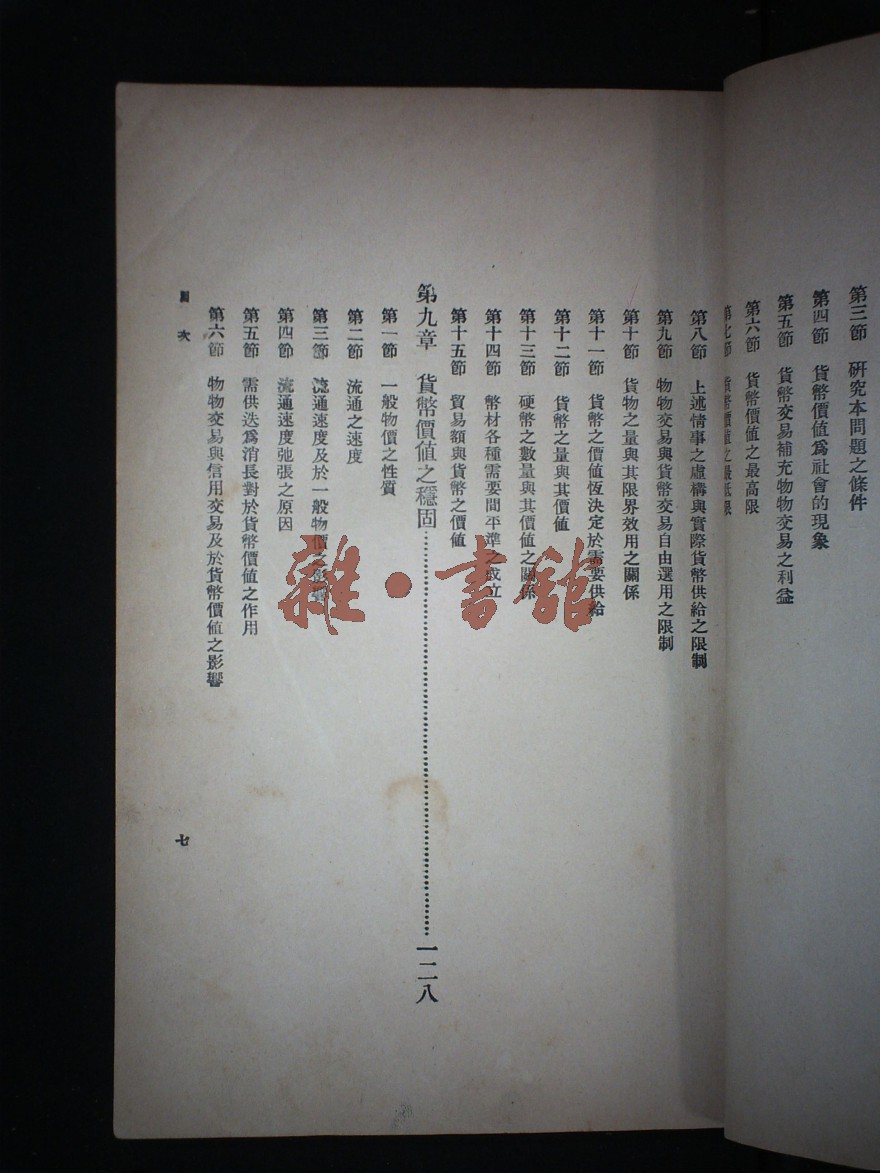 第三節　研究本問題之條件
第四節　貨幣價値爲社會的現象
第五節　貨幣交易補充物物交易之利益
第六節　貨幣價値之最高限
第七節　貨幣價値之最低限
第八節　上述情事之虛構與實際貨幣供給之限制
第九節　物物交易與貨幣交易自由選用之限制
第十節　貨物之量與其限界效用之關係
第十一節　貨幣之價値恆決定於需要供給
第十二節　貨幣之量與其價値
第十三節　硬幣之數量與其價値之關係
第十四節　幣材各種需要間平準之成立
第十五節　貿易額與貨幣之價値
第九章　貨幣價値之穩固……一二八
第一節　一般物價之性質
第二節　流通之速度
第三節　流通速度及於一般物價之影響
第四節　流通速度弛張之原因
第五節　需供迭爲消長對於貨幣價値之作用
第六節　物物交易與信用交易及於貨幣價値之影響
目次
七
雜·書館